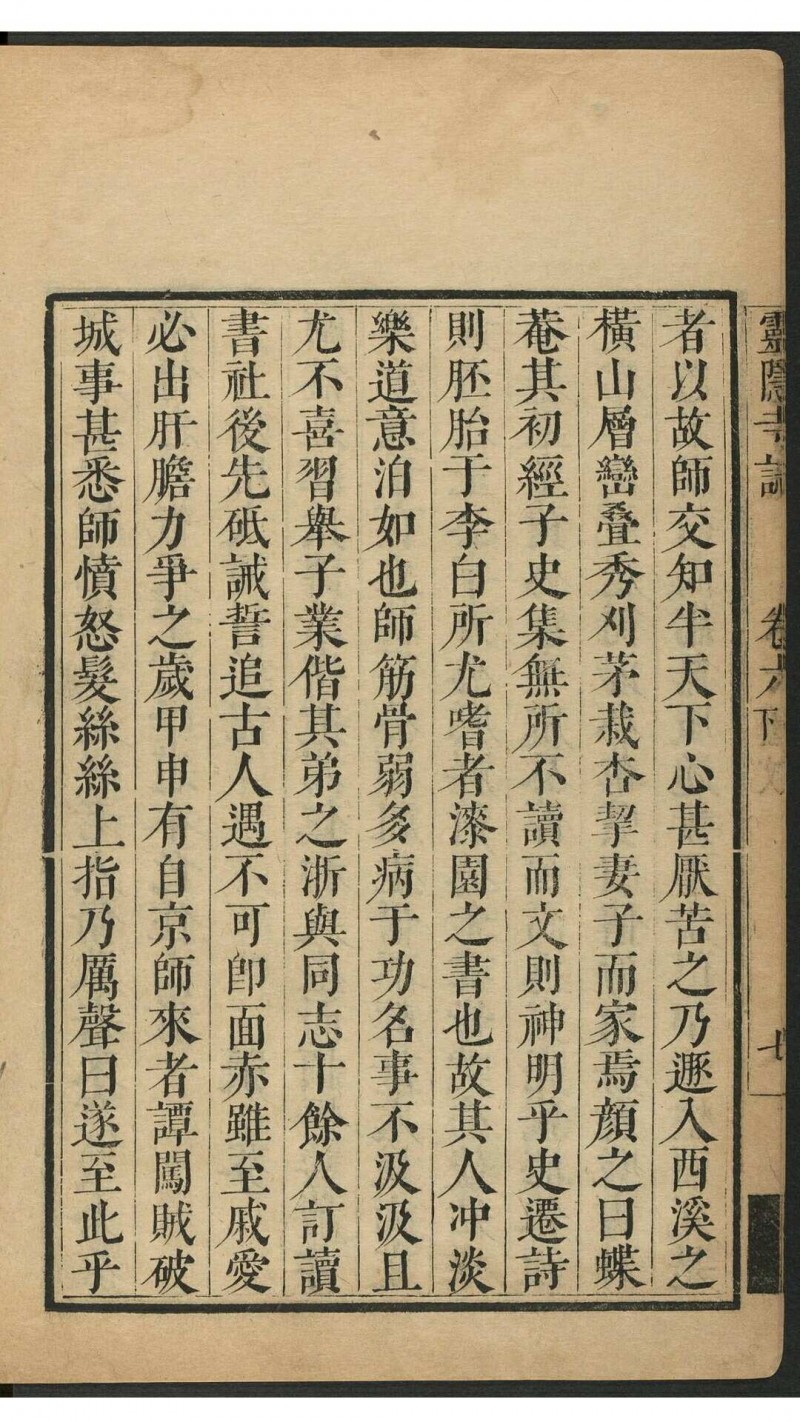 靈隱寺誌 卷六下 七
者以故師交知半天下心甚厭苦之乃遯入西溪之
橫山層巒叠秀刈茅栽杏挈妻子而家焉顏之曰蝶
菴其初經子史集無所不讀而文則神明乎史遷詩
則胚胎于李白所尤嗜者漆園之書也故其人冲淡
樂道意泊如也師筋骨弱多病于功名事不汲汲且
尤不喜習舉子業偕其弟之浙與同志十餘人訂讀
書社後先砥誡誓追古人遇不可卽面赤雖至戚愛
必出肝膽力爭之歲甲申有自京師來者譚闖賊破
城事甚悉師憤怒髮絲絲上指乃厲聲曰遂至此乎